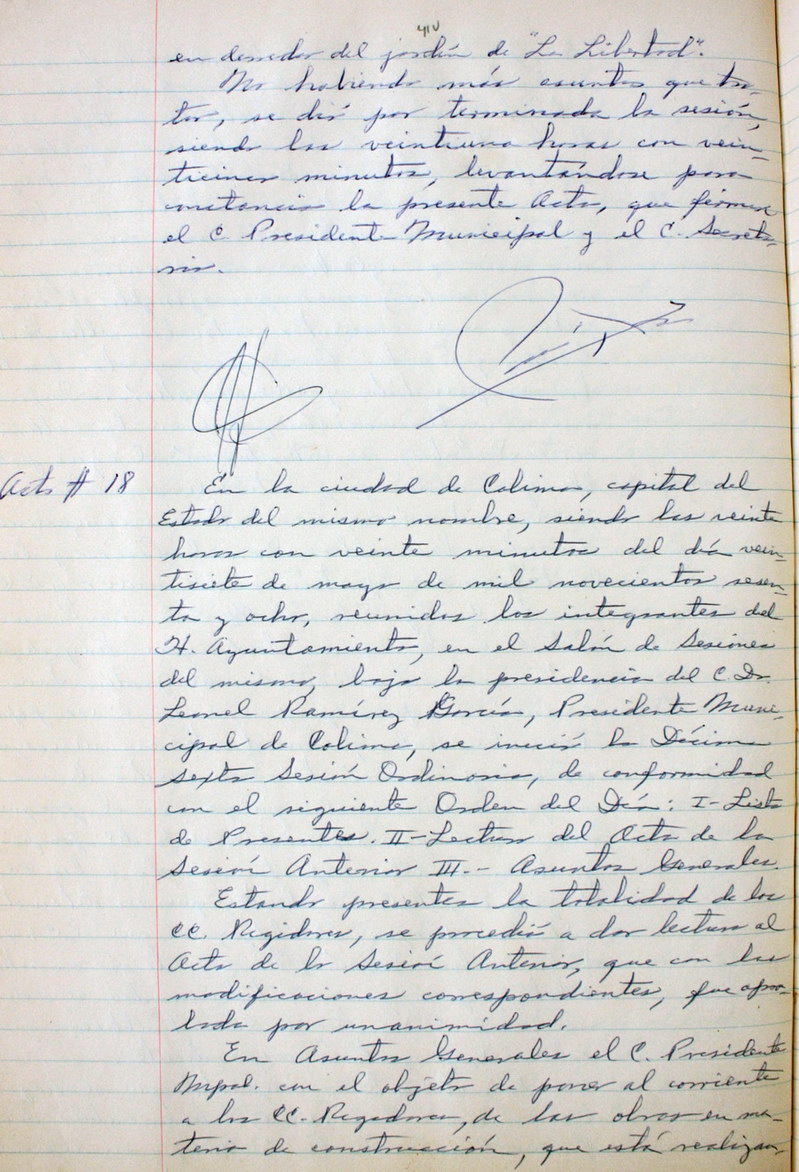 en derredor del jardín de "La Libertad".
No habiendo más asuntos que tra-
tar, se dió por terminada la sesión,
siendo las veintiuna horas con vein-
ticinco minutos, levantándose para
constancia la presente Acta, que firman
el C. Presidente Municipal y el C. Secreta-
rio.
Acta # 18
En la ciudad de Colima, capital del
Estado del mismo nombre, siendo las veinte
horas con veinte minutos del día vein-
tisiete de mayo de mil novecientos sesen-
ta y ocho, reunidos los integrantes del
H. Ayuntamiento, en el Salón de Sesiones
del mismo, bajo la presidencia del C. Dr.
Leonel Ramírez García, Presidente Muni-
cipal de Colima, se inició la Décima
sexta Sesión Ordinaria, de conformidad
con el siguiente Orden del Día: I- Lista
de Presentes. II- Lectura del Acta de la
Sesión Anterior III.- Asuntos Generales.
Estando presentes la totalidad de los
CC. Regidores, se procedió a dar lectura al
Acta de la Sesión Anterior, que con las
modificaciones correspondientes, fue apro-
bada por unanimidad.
En Asuntos Generales el C. Presidente
Mpal. con el objeto de poner al corriente
a los CC. Regidores, de las obras en ma-
teria de construcción, que está realizan-